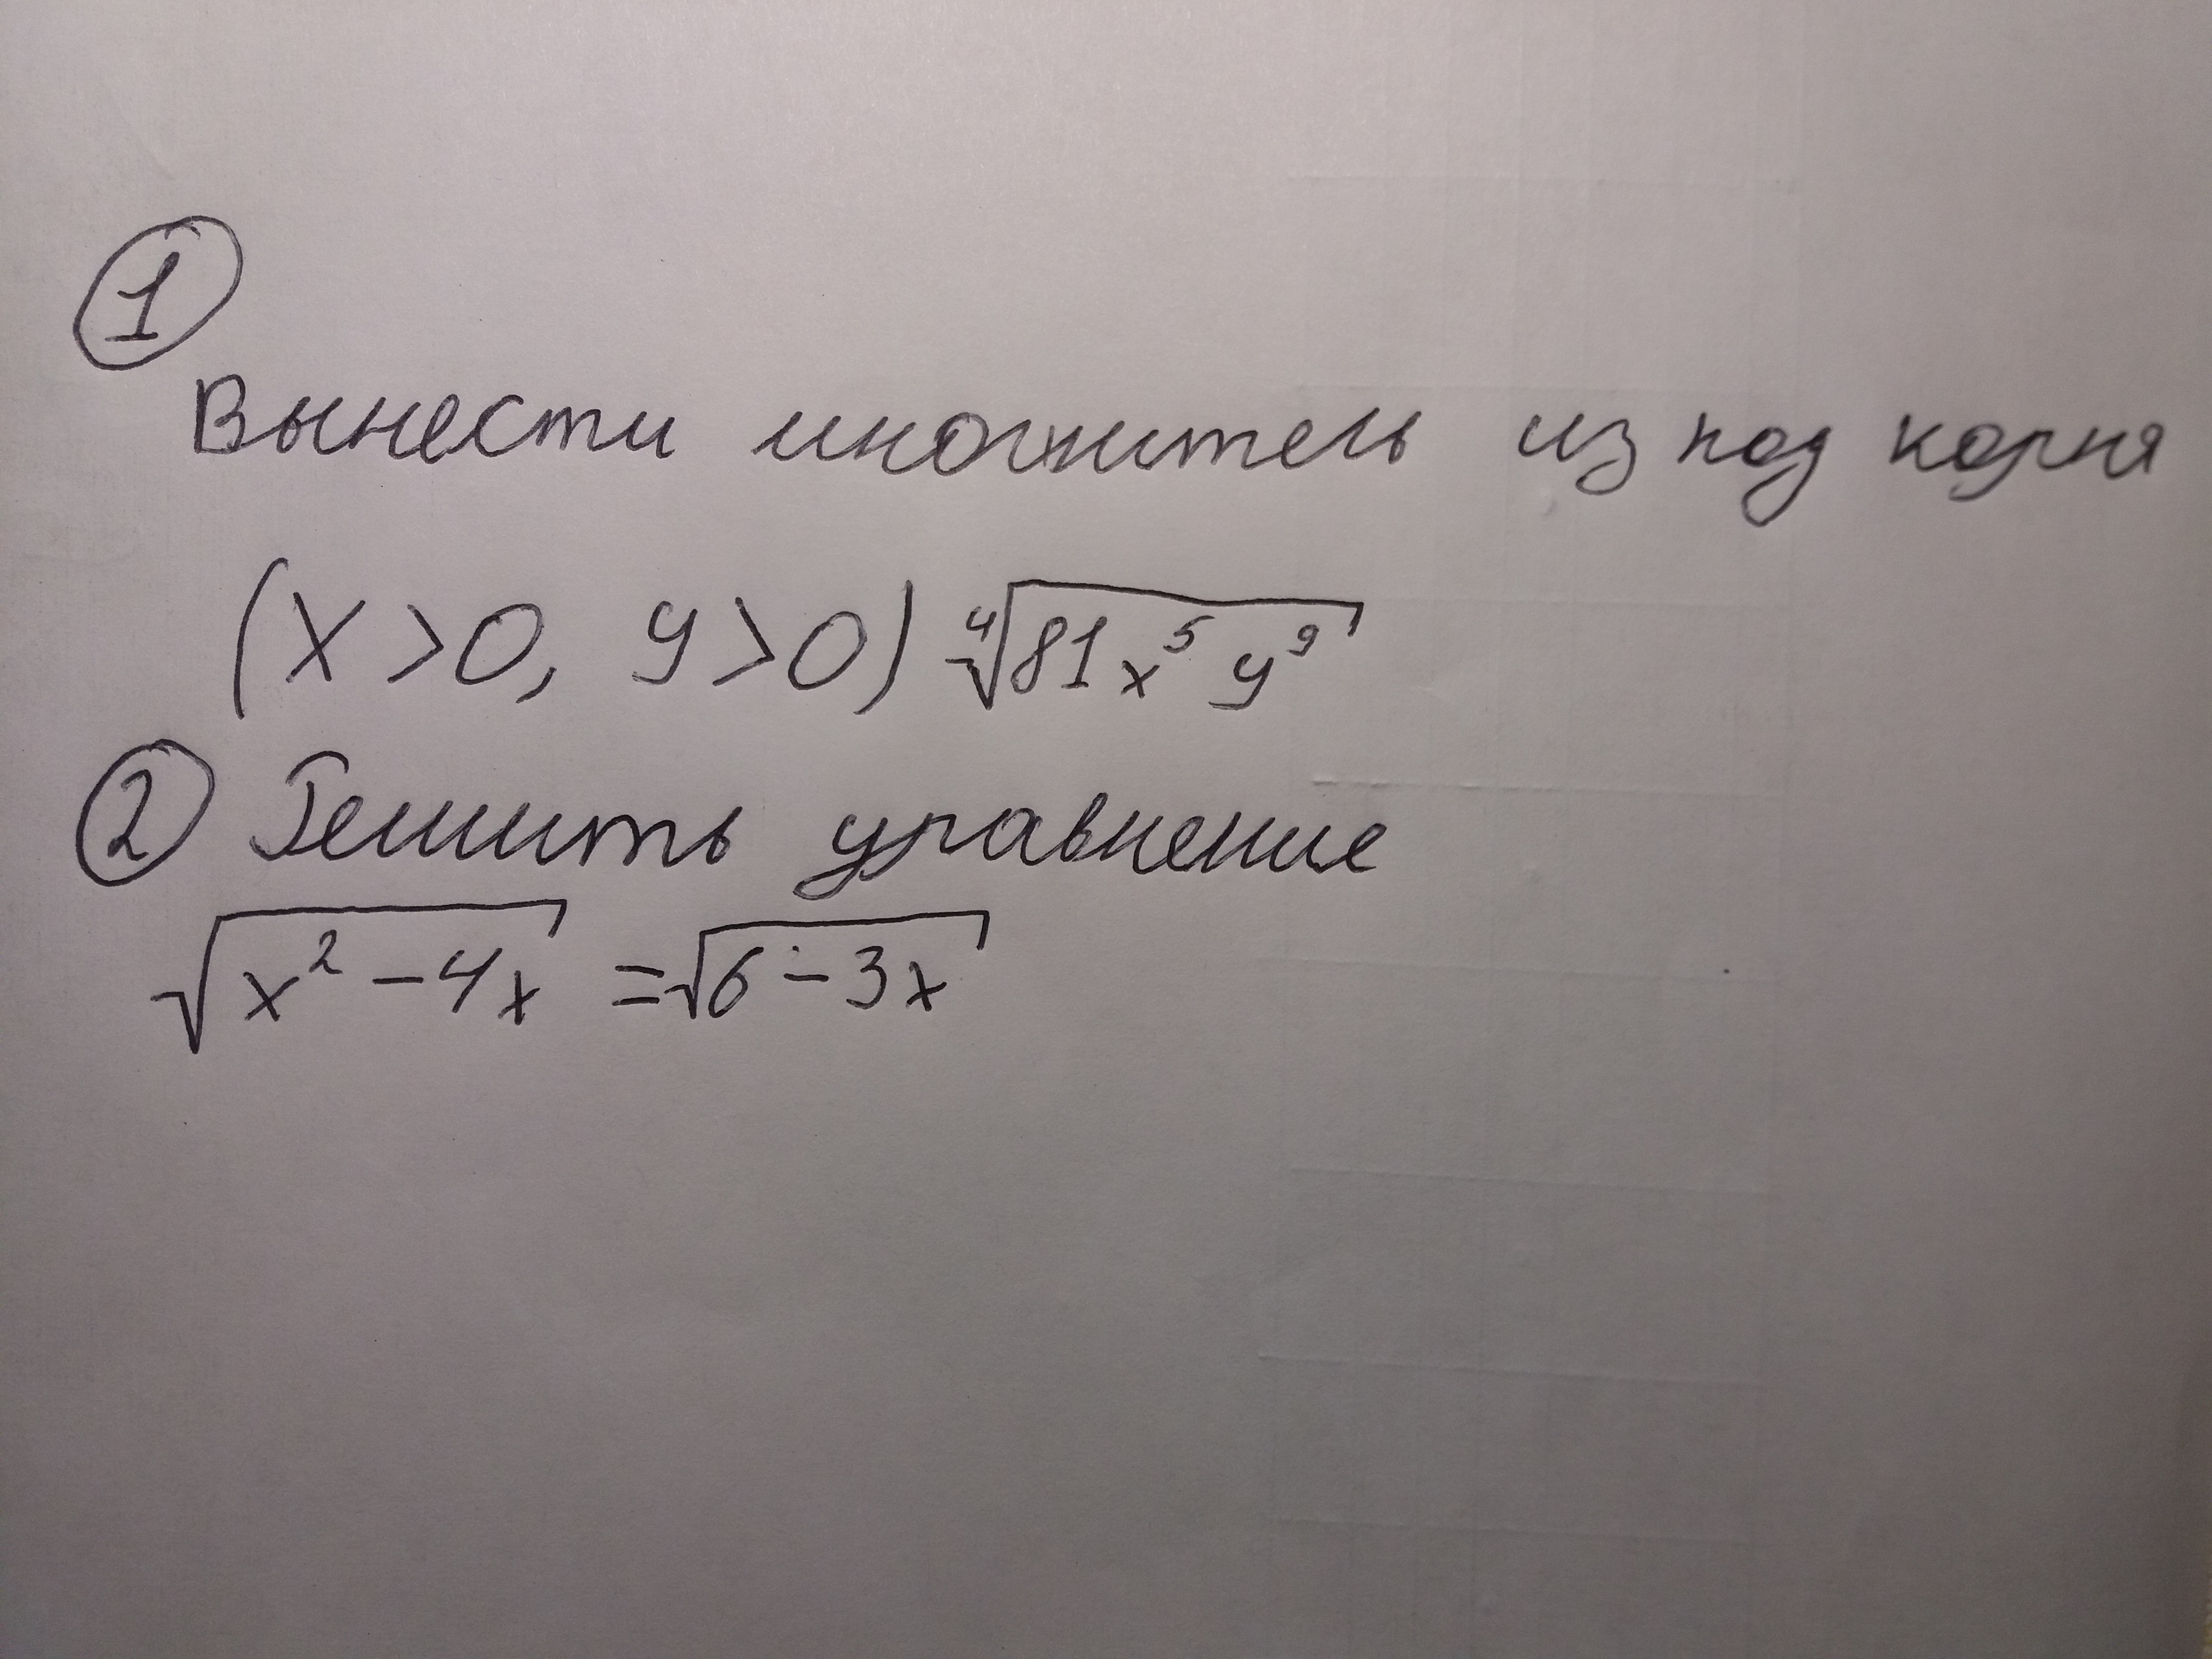 1
Вынести множитель из под корня
(x>0, y>0) ⁴√81x⁵y⁹
2 Решить уравнение
√x²-4x = √6-3x